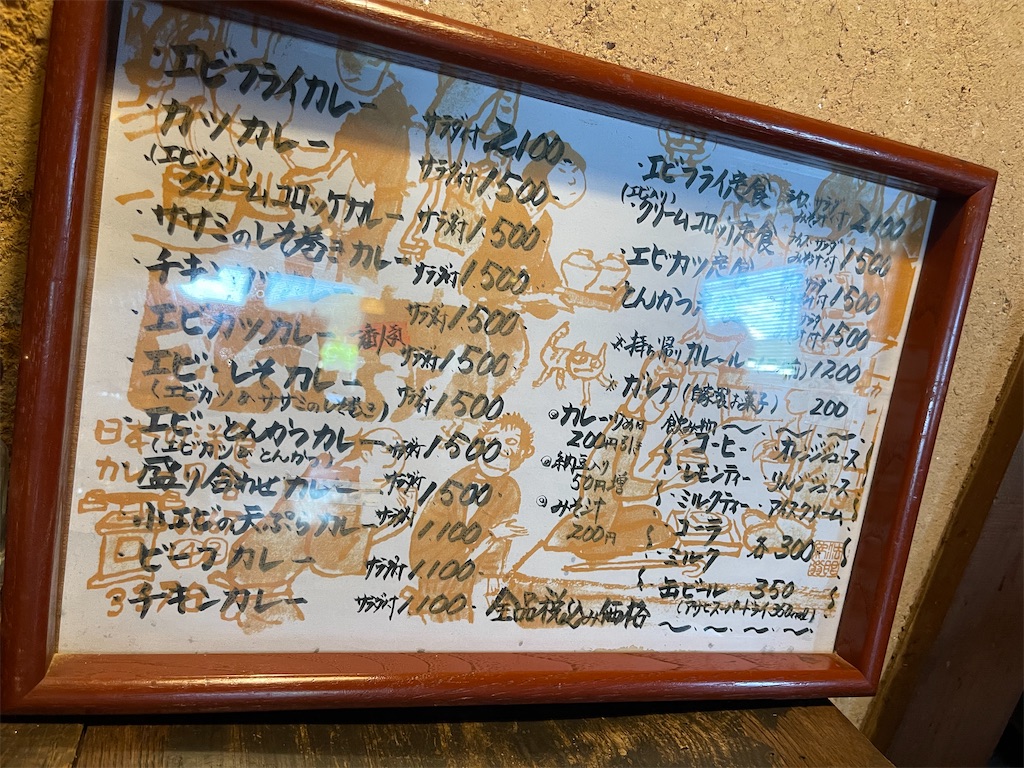 ・エビフライカレー サラダ付 2,100-
・カツカレー サラダ付 1,500-
・(エビ入り)クリームコロッケカレー サラダ付 1,500-
・ササミのしそ巻きカレー サラダ付 1,500-
・チキンカツカレー サラダ付 1,500-
・エビカツカレー サラダ付 1,500-
・エビ・しそカレー サラダ付 1,500-
(エビカツ&ササミのしそ巻き)
・エビ・とんかつカレー サラダ付 1,500-
(エビカツ&とんかつ)
・盛り合わせカレー サラダ付 1,500-
・小エビの天ぷらカレー サラダ付 1,100-
・ビーフカレー サラダ付 1,100-
・チキンカレー サラダ付
・エビフライ定食 ライス・サラダ みそ汁付 2,100
(エビ入り)クリームコロッケ定食 ライス・サラダ みそ汁付 1,500
・エビカツ定食 1,500
・とんかつ 1,500
※持ち帰りカレールー 1200
※カルナ(自家製お菓子) 200
◎カレーつめほ
200円引き
◎納豆入り
50円増
◎みそ汁
200円
飲み物
コーヒー オレンジジュース
レモンティー リンゴジュース
ミルクティー アイスクリーム
コーラ
ミルク 各300
缶ビール 350
(アサヒスーパードライ350ml)
全品税込み価格